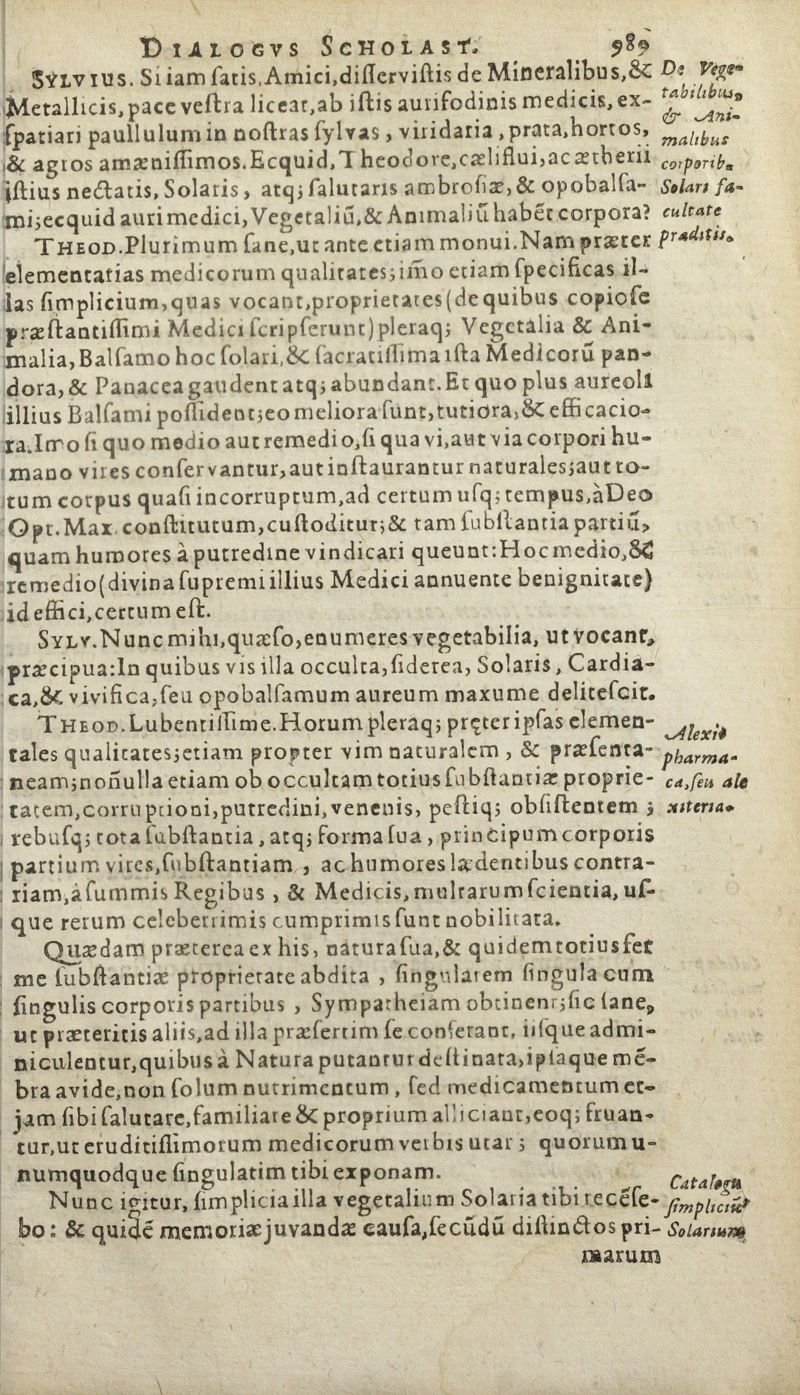 DIALOGVS SCHOLAST. 989
SYLVIUS. Si iam satis, Amici, disserviſtis de Mineralibus, &
Metallicis, pace veſtra liceat, ab iſtis aurifodinis medicis, ex-
ſpatiari paullulum in noſtras ſylvas, viridaria, prata, hortos,
& agros amæniſſimos. Ecquid, Theodore, cæliflui, ac ætherii
iſtius nectaris, Solaris, atq; ſalutaris ambroſiæ, & opobalſa-
mi; ecquid auri medici, Vegetaliū, & Animaliū habēt corpora?
De Vege-
tabilibus,
& Ani-
malibus
corporib.
Solari fa-
cultate
præditis.
THEOD. Plurimum ſane, ut ante etiam monui. Nam præter
elementarias medicorum qualitates; im̄o etiam ſpecificas il-
las ſimplicium, quas vocant, proprietates (de quibus copioſe
præſtantiſſimi Medici ſcripſerunt) pleraq; Vegetalia & Ani-
malia, Balſamo hoc ſolari, & ſacratiſſima iſta Medicorū pan-
dora, & Panacea gaudent atq; abundant. Et quo plus aureoli
illius Balſami poſſident; eo meliora ſunt, tutiora, & efficacio-
ra. Imo ſi quo medio aut remedio, ſi qua vi, aut via corpori hu-
mano vires conſervantur, aut inſtaurantur naturales; aut to-
tum corpus quaſi incorruptum, ad certum uſq; tempus, à Deo
Opt. Max. conſtitutum, cuſtoditur; & tam ſubſtantia partiū,
quam humores à putredine vindicari queunt: Hoc medio, &
remedio (divina ſupremi illius Medici annuente benignitate)
id effici, certum eſt.
SYLV. Nunc mihi, quæſo, enumeres vegetabilia, ut vocant,
præcipua: In quibus vis illa occulta, ſiderea, Solaris, Cardia-
ca, & vivifica, ſeu opobalſamum aureum maxume deliteſcit.
THEOD. Lubentiſſime. Horum pleraq; pręter ipſas elemen-
tales qualitates; etiam propter vim naturalem, & præſenta-
neam; non̄ulla etiam ob occultam totius ſubſtantiæ proprie-
tatem, corruptioni, putredini, venenis, peſtiq; obſiſtentem;
rebuſq; tota ſubſtantia, atq; forma ſua, principum corporis
partium vires, ſubſtantiam, ac humores lædentibus contra-
riam, à ſummis Regibus, & Medicis, multarum ſcientia, uſ-
que rerum celeberrimis cumprimis ſunt nobilitata.
Alexi-
pharma-
ca, ſeu ale
xiteria.
Quædam præterea ex his, natura ſua, & quidem totius fer
me ſubſtantiæ proprietate abdita, ſingularem ſingula cum
ſingulis corporis partibus, Sympatheiam obtinent; ſic ſane,
ut præteritis aliis, ad illa præſertim ſe conferant, iiſque admi-
niculentur, quibus à Natura putantur deſtinata, ipſaque mē-
bra avide, non ſolum nutrimentum, ſed medicamentum et-
jam ſibi ſalutare, familiare & proprium alliciant, eoq; fruan-
tur, ut eruditiſſimorum medicorum verbis utar; quorum u-
numquodque ſingulatim tibi exponam.
Nunc igitur, ſimplicia illa vegetalium Solaria tibi recēſe-
bo: & quidē memoriæ juvandæ cauſa, ſecūdū diſtinctos pri-
Catalogu
ſimpliciū
Solarium
marum